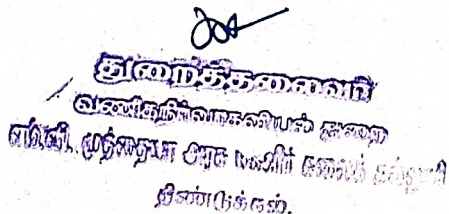 துறைத்தலைவர்
வணிக நிர்வாகவியல் துறை
எம்.வி. முத்தையா அரசு மகளிர் கலைக் கல்லூரி
திண்டுக்கல்.